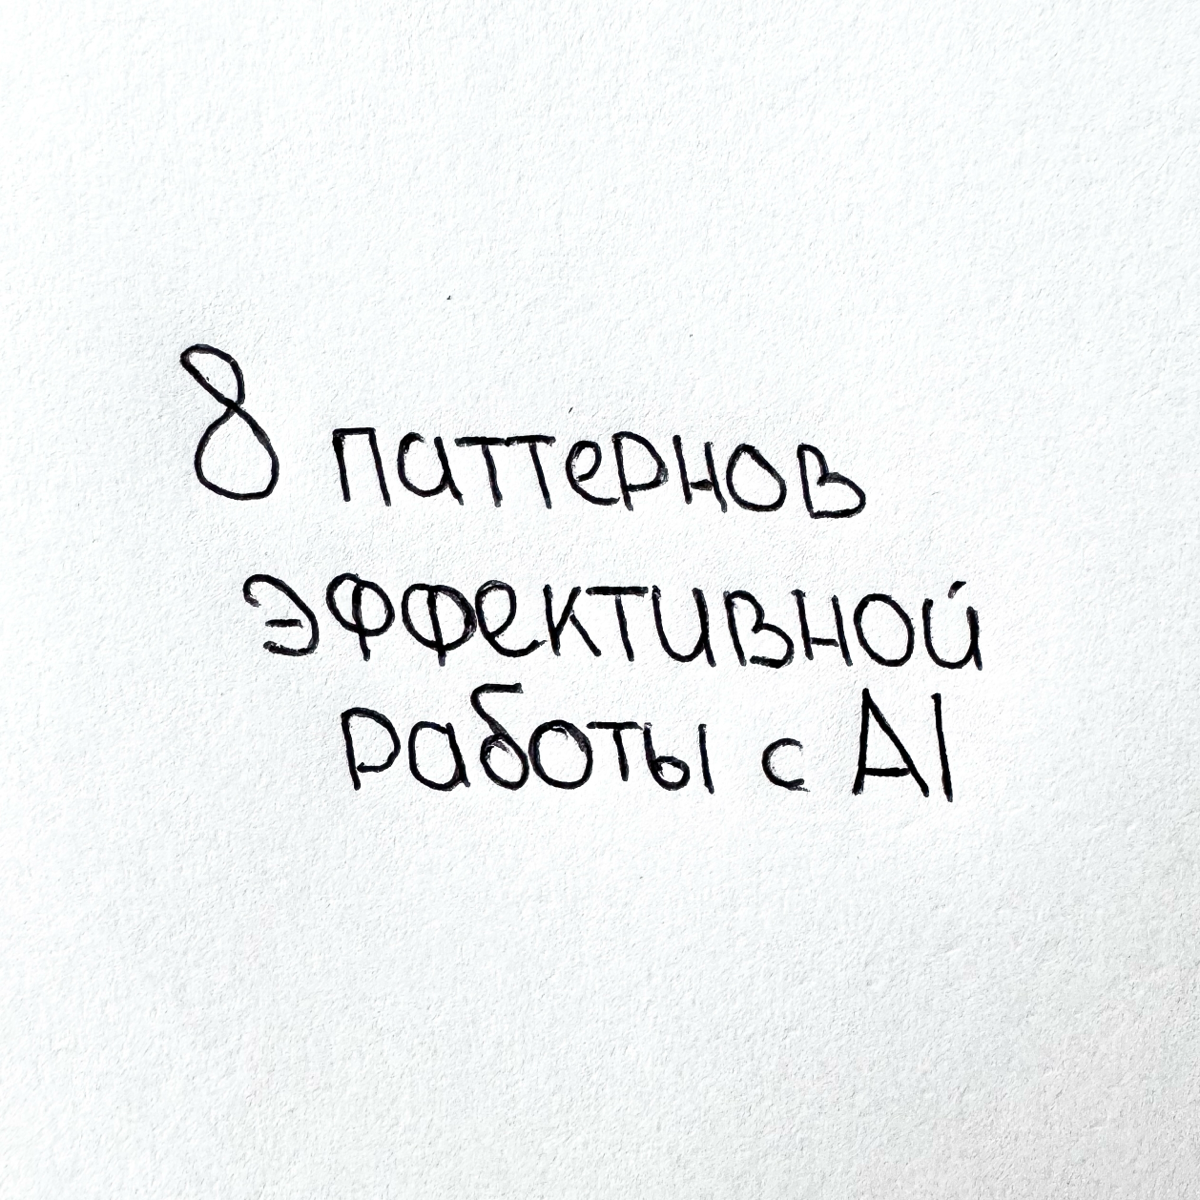 8 паттернов
эффективной
работы с AI